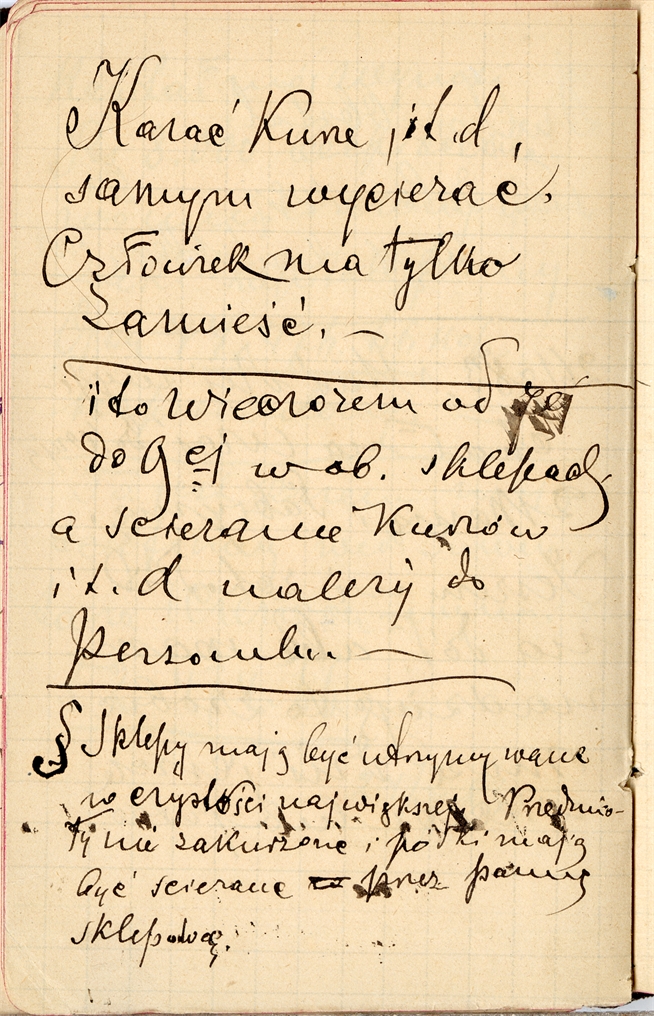 Karać Kurze, it.d,
samym wycierać.
Człowiek ma tylko
zamieść. —
i to wieczorem od
do 9ej w ob. sklepach
a scieranie Kurzów
i t. d należy do
personelu. —
§ Sklepy mają być utrzymywane
w czystości największej. Przedmio-
ty nie zakurzone i półki mają
być scierane przez panną
sklepową.